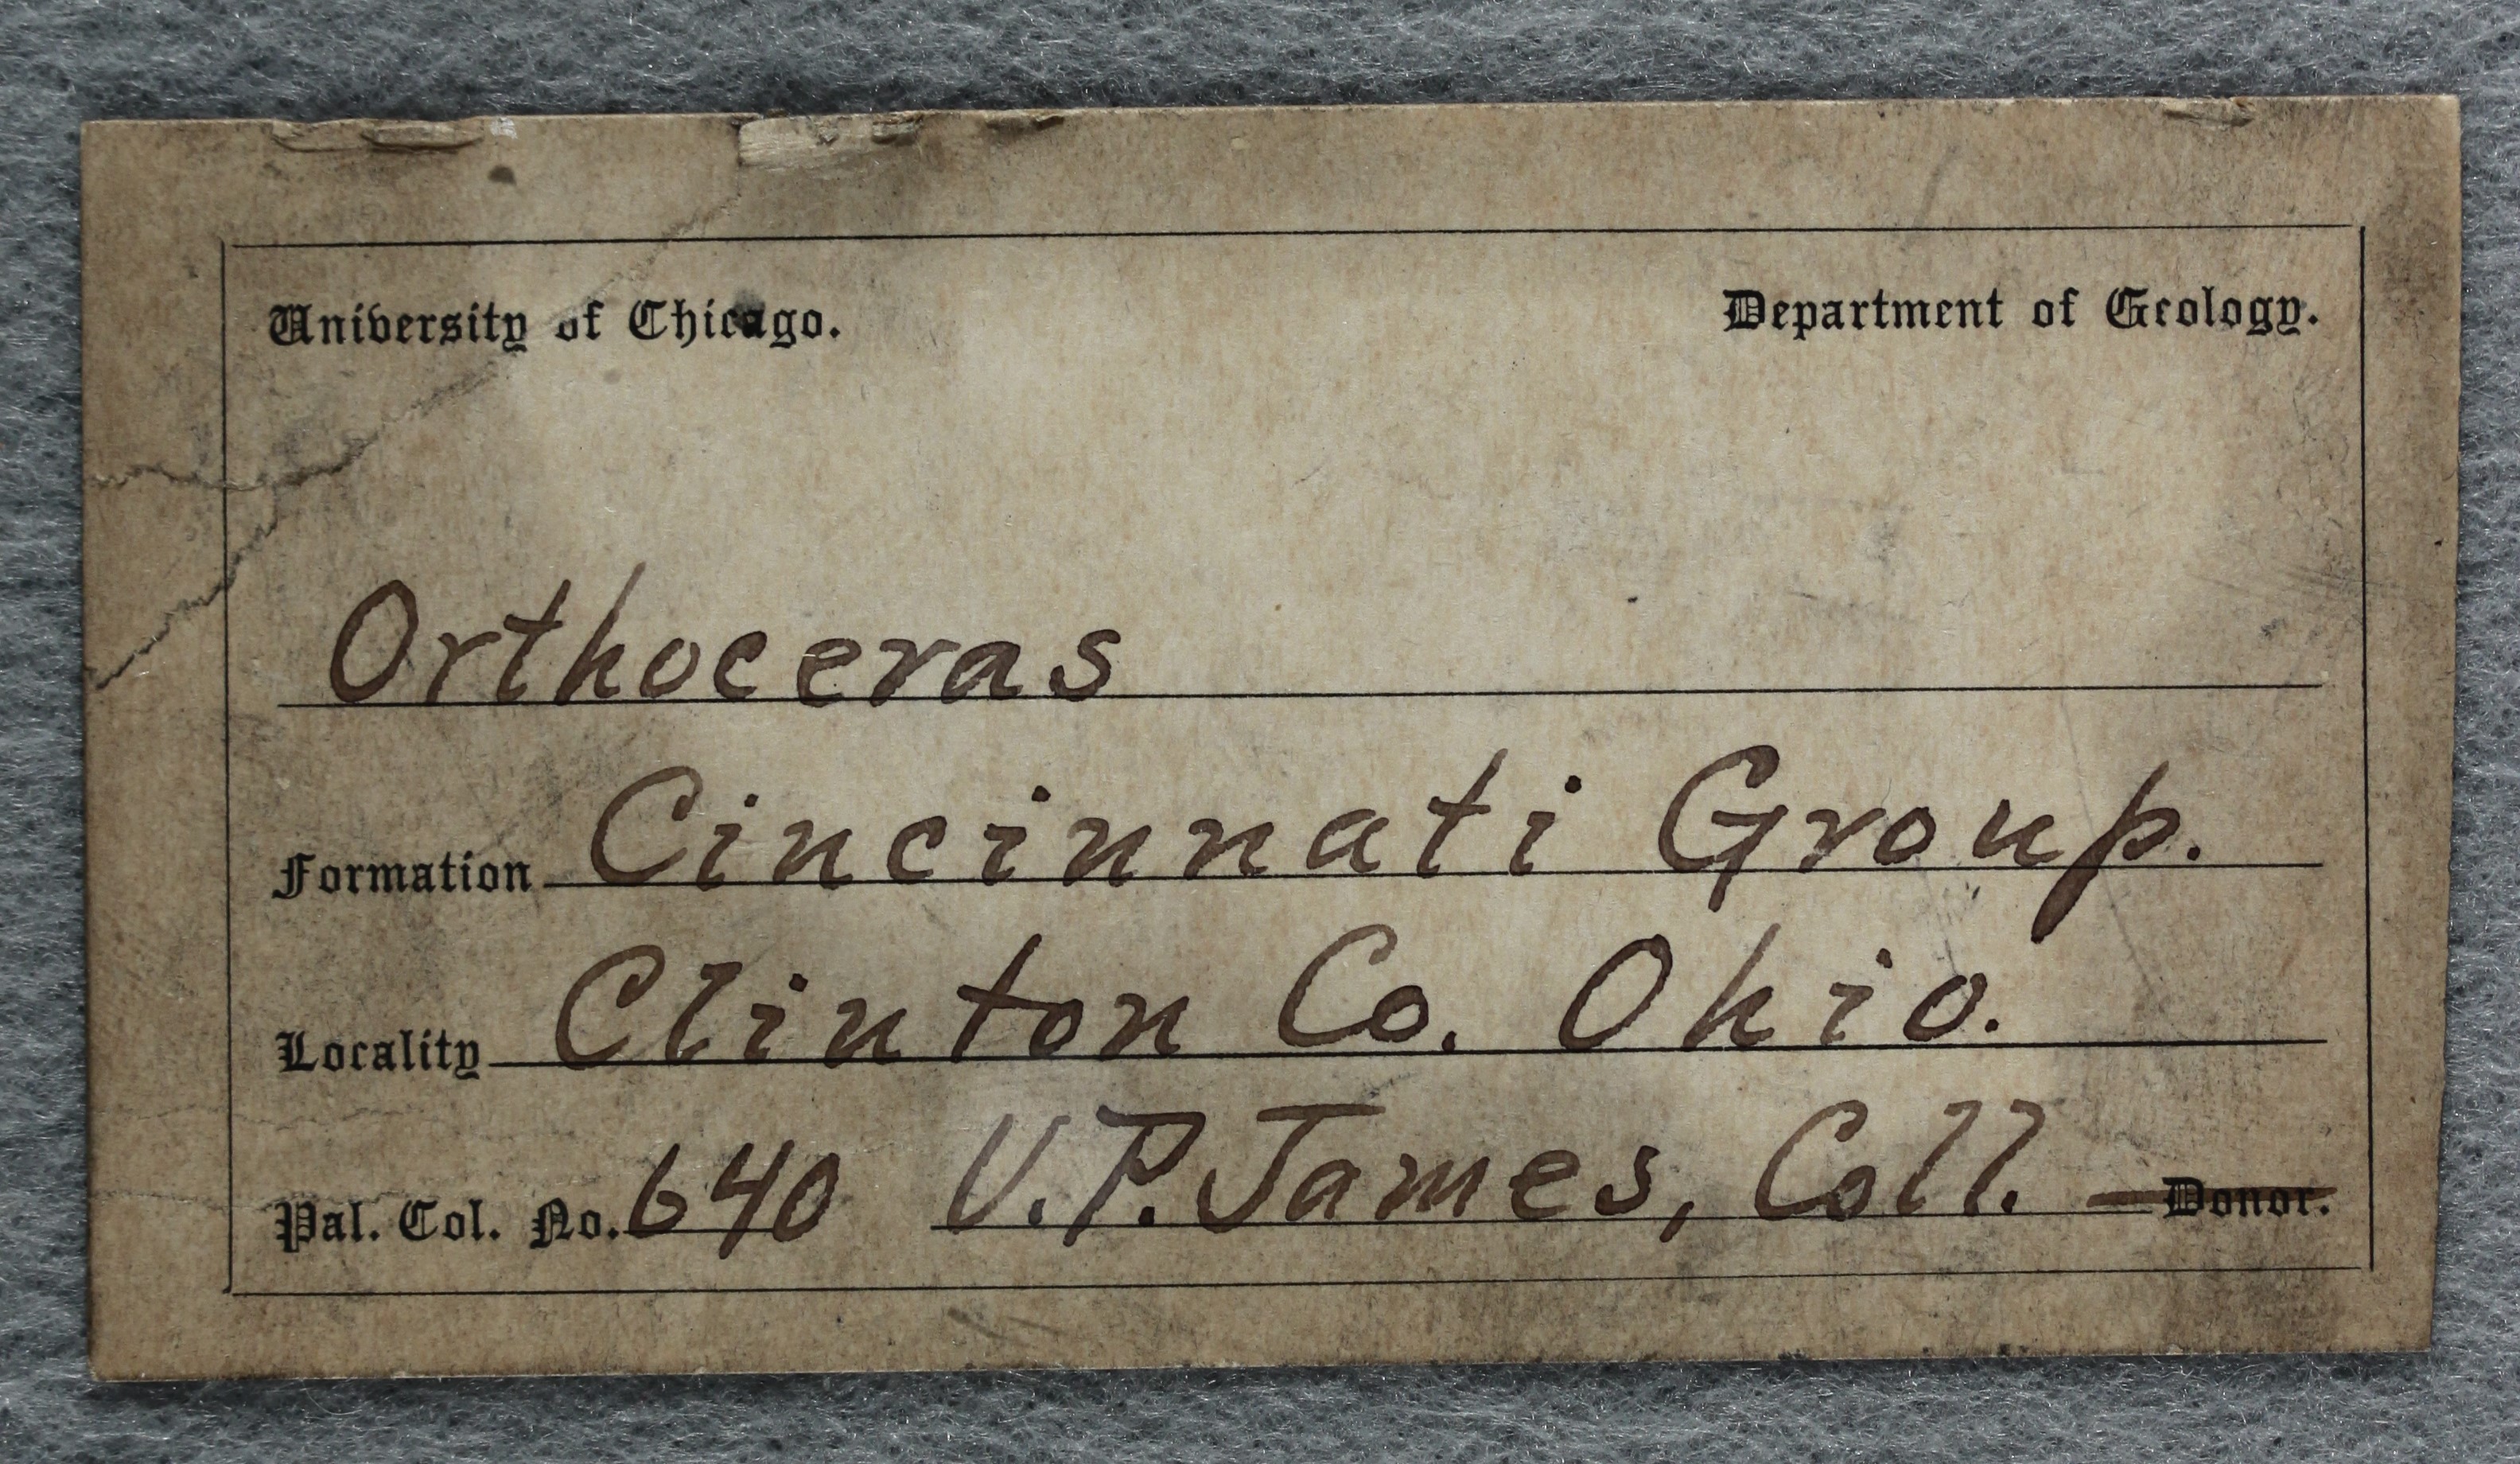 University of Chicago. Department of Geology.
Orthoceras
Formation Cincinnati Group.
Locality Clinton Co. Ohio.
Pal. Col. No. 640 U.P. James, Coll. Donor.